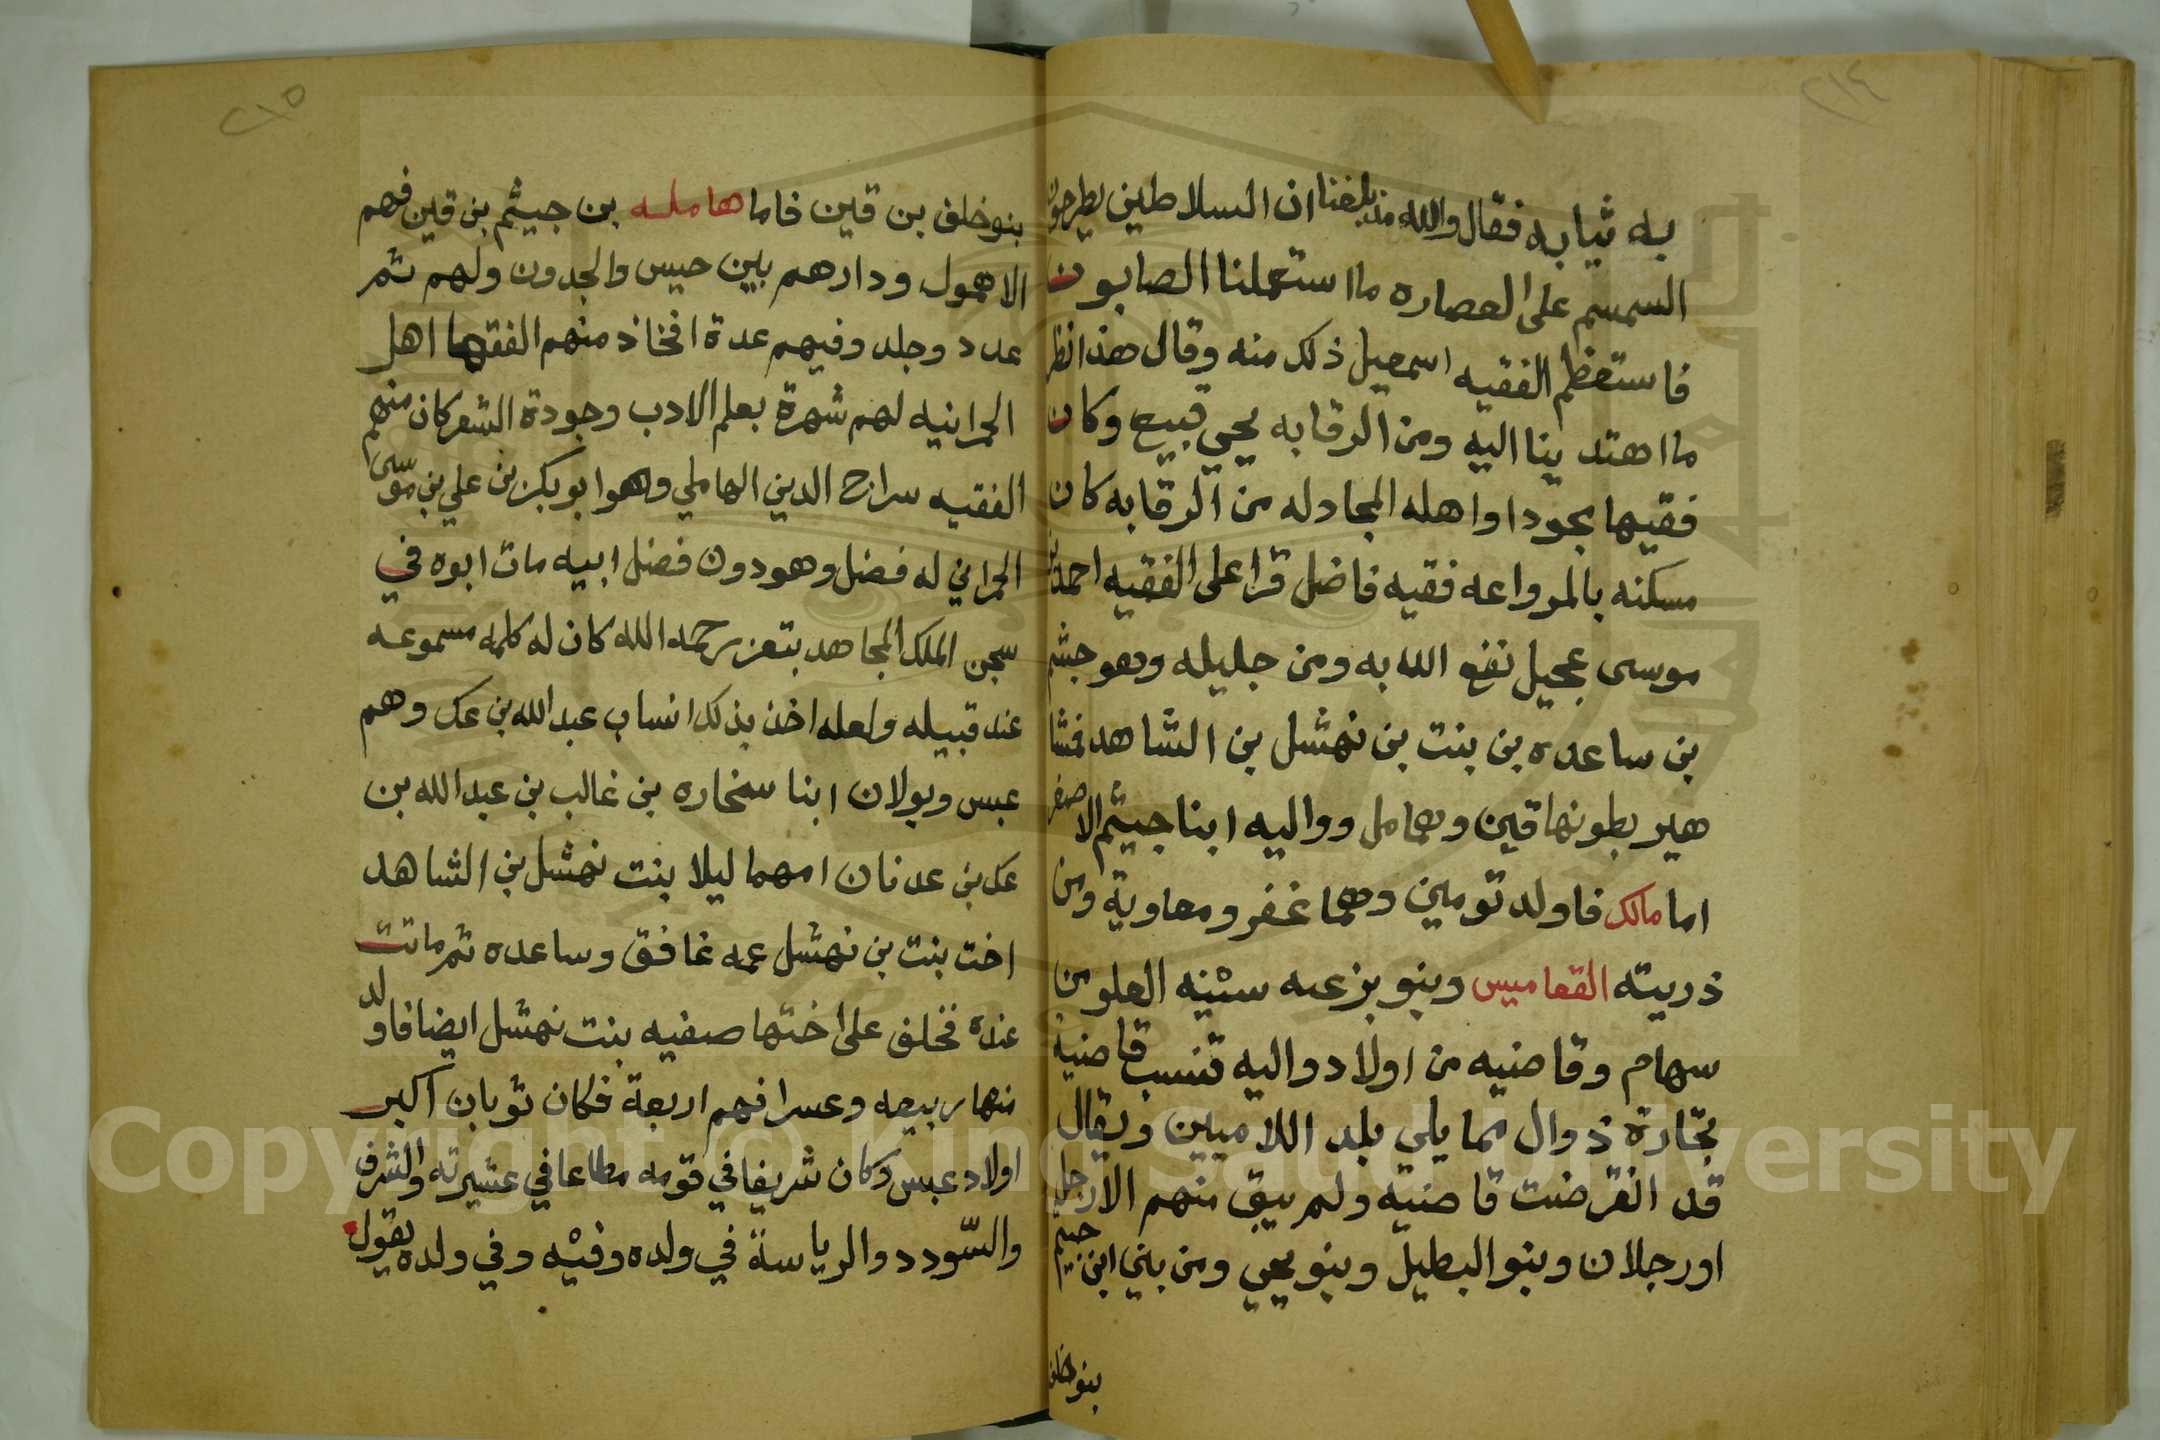 ٢١٤
به ثيابه فقال والله مذ بلغنا ان السلاطين يطرحون
السمسم على العصاره ما استعملنا الصابون
فاستعظم الفقيه اسمعيل ذلك منه وقال هذا نظر
ما اهتدينا اليه ومن الرقابه يحيى قبيع وكان
فقيها مجودا واهله المجادله من الرقابه كان
مسكنه بالمرواعه فقيه فاضل قرا على الفقيه احمد بن
موسى عجيل نفع الله به ومن جليله وهو جشم
بن ساعده بن بنت بن نهشل بن الشاهد فمشا
هير بطونها قين وهامل وواليه ابنا جيثم الاصغر
اما مالك فاولد تومين وهما غفر ومعاوية ومن
ذريته القعاميس وبنو بزعه سئنه العلو من
سهام وقاصنيه من اولاد واليه قنسب قاصنية
بحارة ذوال مما يلي بلد اللاميين ويقال
قد انقرضت قاصنيه ولم يبق منهم الا رجل
او رجلان وبنو البطيل وبنو يحيى ومن بني ابن جيثم
بنو خلف
٢١٥
بنو خلف بن قين فاما هامله بن جيثم بن قين فهم
الاهمول ودارهم بين حيس والجدون ولهم ثم
عدد وجلد وفيهم عدة افخاذ منهم الفقها اهل
الحرانيه لهم شهرة بعلم الادب وجودة الشعر كان منهم
الفقيه سراج الدين الهاملي وهو ابو بكر بن علي بن موسى
الحراني له فضل وهو دون فضل ابيه مات ابوه في
سجن الملك المجاهد بتعز رحمه الله كان له كلمه مسموعه
عند قبيله ولعله اخذ بذلك انساب عبد الله بن عك وهم
عبس وبولان ابنا سخاره بن غالب بن عبد الله بن
عك بن عدنان امهما ليلا بنت نهشل بن الشاهد
اخت بنت بن نهشل عمه غافق وساعده ثم ماتت
عنده فخلف على اختها صفيه بنت نهشل ايضا فاولد
منها ربيعه وعسرا فهم اربعة فكان ثوبان اكبر
اولاد عبس وكان شريفا في قومه مطاعا في عشيرته والشرف
والسودد والرياسة في ولده وفيه وفي ولده يقول
Copyright © King Saud University